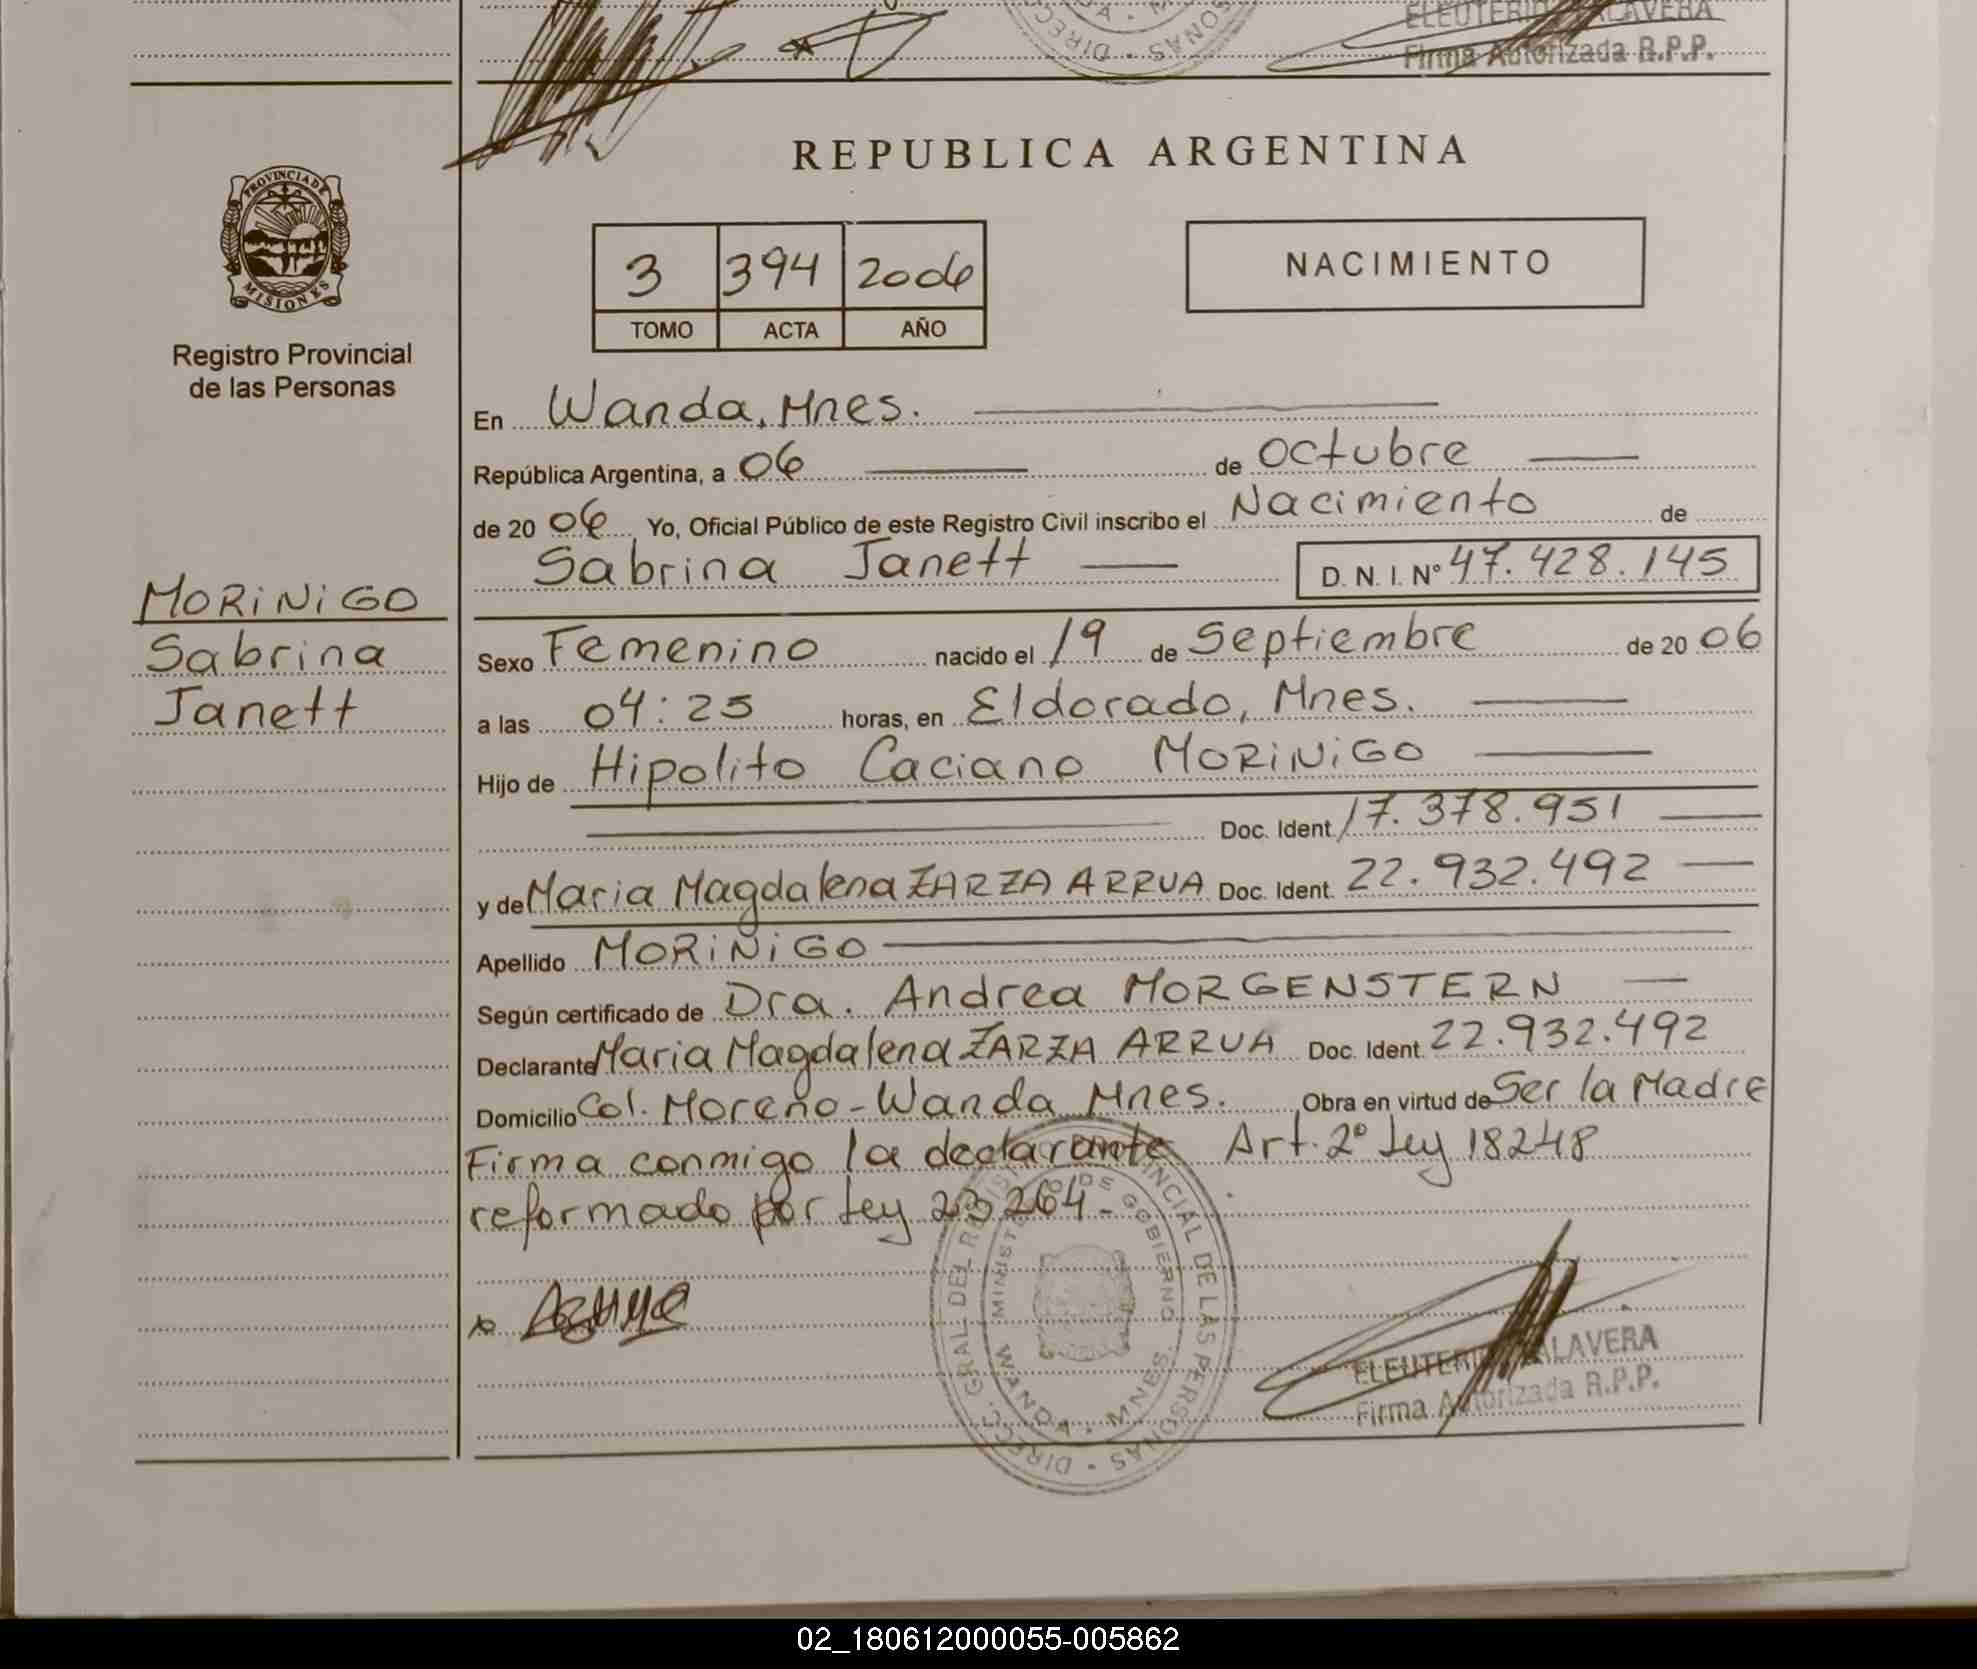 ELEUTERIO TALAVERA
Firma Autorizada R.P.P.
DIREC
SONAS
REPUBLICA ARGENTINA
PROVINCIA DE
MISIONES
Registro Provincial
de las Personas
3 394 2006
TOMO ACTA AÑO
NACIMIENTO
MORINIGO
Sabrina
Janett
En Wanda, Mnes.
República Argentina, a 06 de Octubre
de 20 06 Yo, Oficial Público de este Registro Civil inscribo el Nacimiento de
Sabrina Janett D. N. I. Nº 47.428.145
Sexo Femenino nacido el 19 de Septiembre de 20 06
a las 04:25 horas, en Eldorado, Mnes.
Hijo de Hipolito Caciano MORINIGO
Doc. Ident. 17.378.951
y de Maria Magdalena ZARZA ARRUA Doc. Ident. 22.932.492
Apellido MORINIGO
Según certificado de Dra. Andrea MORGENSTERN
Declarante Maria Magdalena ZARZA ARRUA Doc. Ident. 22.932.492
Domicilio Col. Moreno - Wanda Mnes. Obra en virtud de Ser la Madre
Firma conmigo la declarante Art. 2º Ley 18248
reformado por Ley 23264.-
DIRECC. GRAL DEL REGIST PROVINCIAL DE LAS PERSONAS
MINISTERIO DE GOBIERNO
WANDA - MNES.
ELEUTERIO TALAVERA
Firma Autorizada R.P.P.
02_180612000055-005862